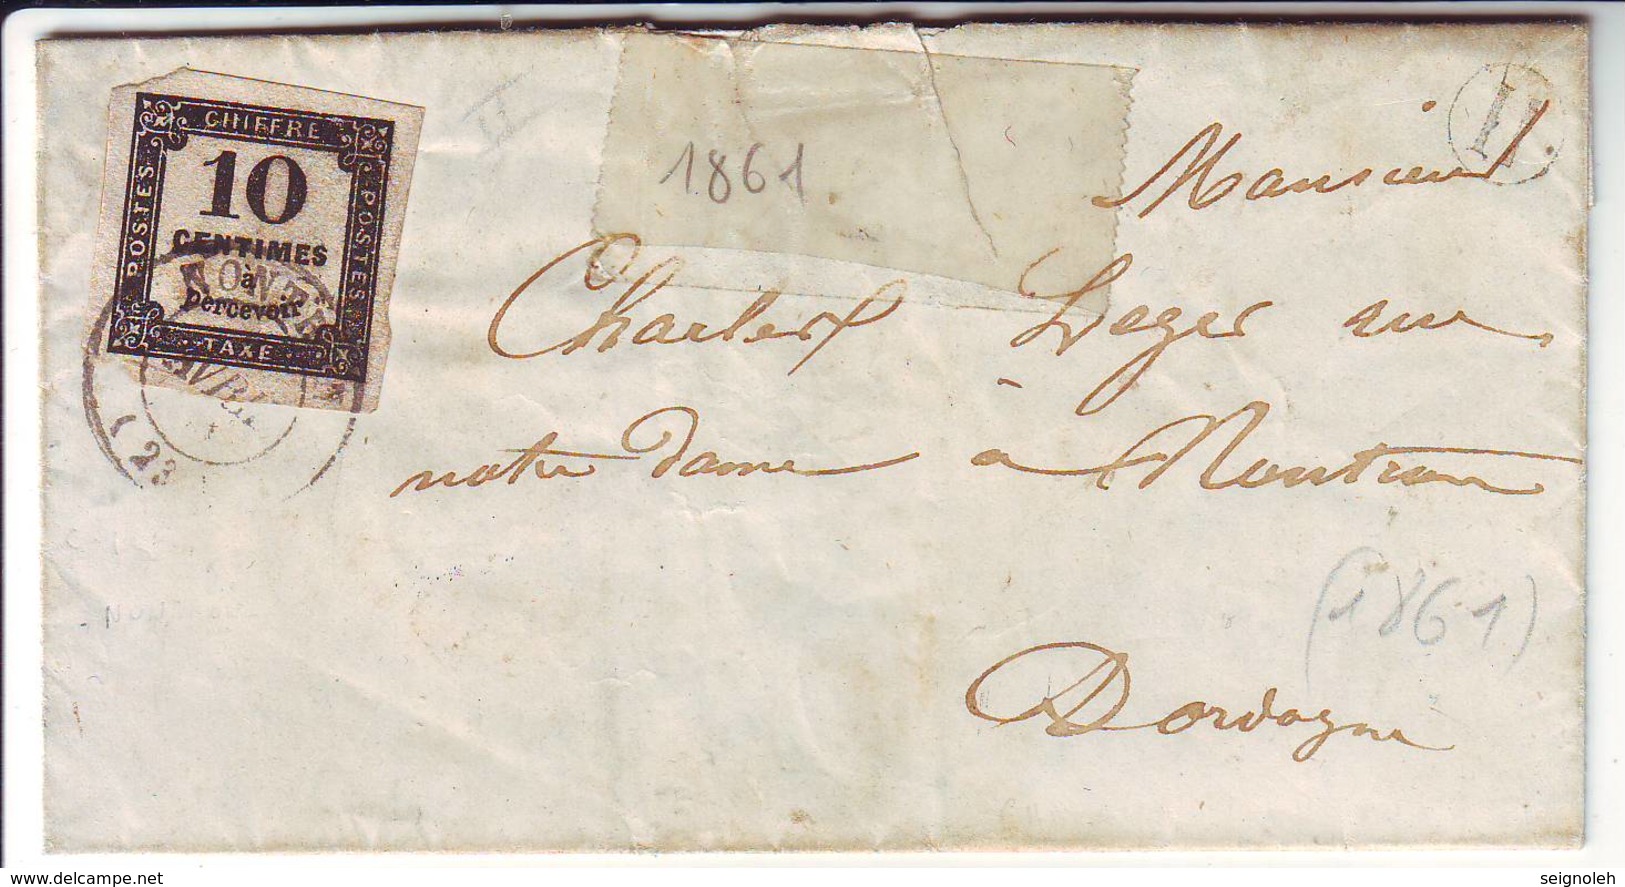 CHIFFRE
10
CENTIMES
à
percevoir
TAXE
POSTES
POSTES
1861
H
Monsieur
Charles Leger rue
notre dame a Nontron
Dordogne
(1861)
(23
www.delcampe.net
seignoleh